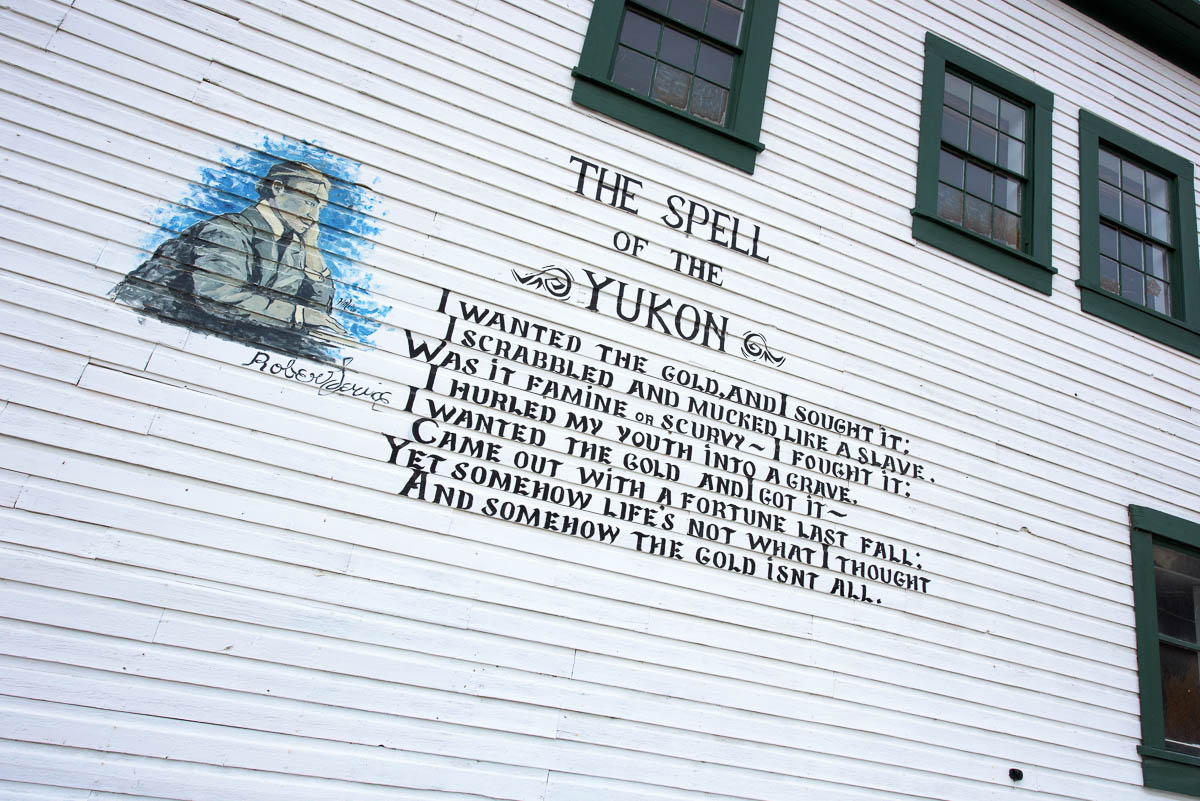 THE SPELL
OF THE
YUKON
I WANTED THE GOLD, AND I SOUGHT IT;
I SCRABBLED AND MUCKED LIKE A SLAVE.
WAS IT FAMINE OR SCURVY~I FOUGHT IT;
I HURLED MY YOUTH INTO A GRAVE.
I WANTED THE GOLD AND I GOT IT~
CAME OUT WITH A FORTUNE LAST FALL;
YET SOMEHOW LIFE'S NOT WHAT I THOUGHT
AND SOMEHOW THE GOLD ISNT ALL.
Robert Service